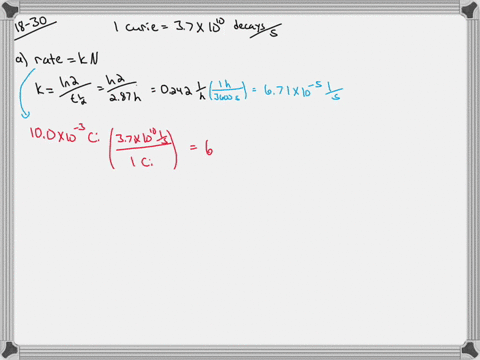 18-30
1 curie = 3.7 x 10^10 decays/s
a) rate = kN
k = ln2/t½ = ln2/2.87h = 0.242 1/h (1h/3600s) = 6.71 x 10^-5 1/s
10.0 x 10^-3 Ci (3.7 x 10^10 1/s / 1 Ci) = 6